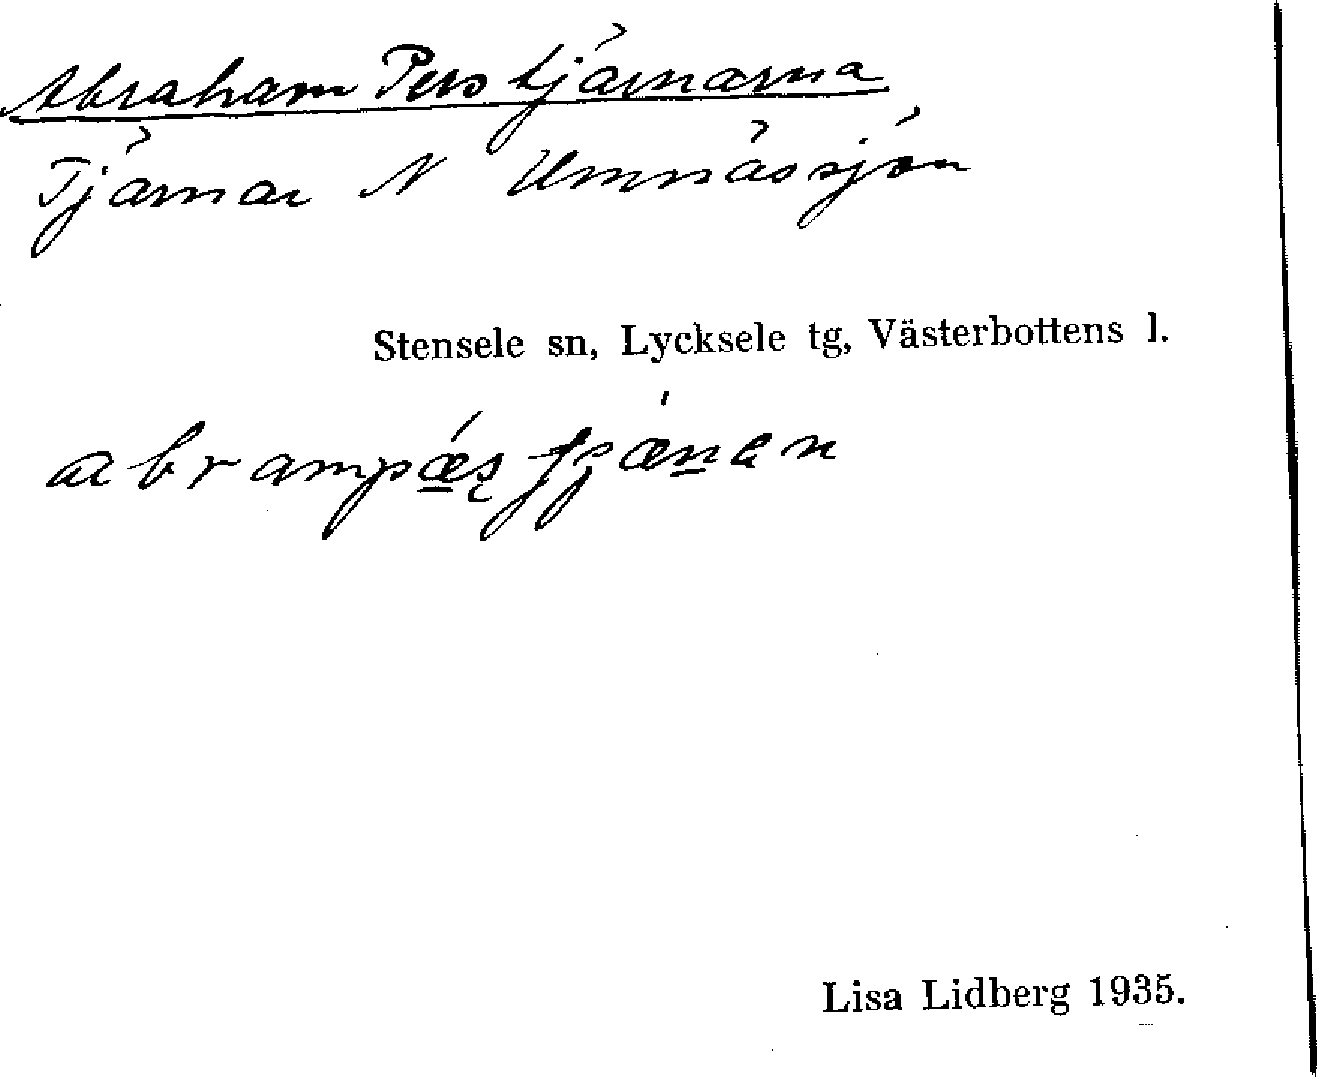 Abraham Pers tjärnarna
Tjärnar N Umnässjön
Stensele sn, Lycksele tg, Västerbottens l.
Lisa Lidberg 1935.